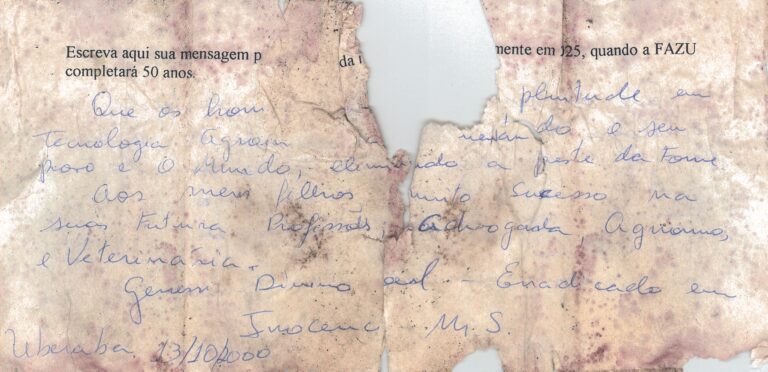 Escreva aqui sua mensagem p da mente em 025, quando a FAZU
completará 50 anos.
Que os hom plenitude em
tecnologia Agron a do o seu
povo e o mundo, eliminando a peste da Fome
Aos meus filhos, muito sucesso na
suas Futura Profissões, Advogada, Agronomo,
e Veterinária.
Divino - Erradicado em
Inocenc M.S.
Uberaba 13/10/2000